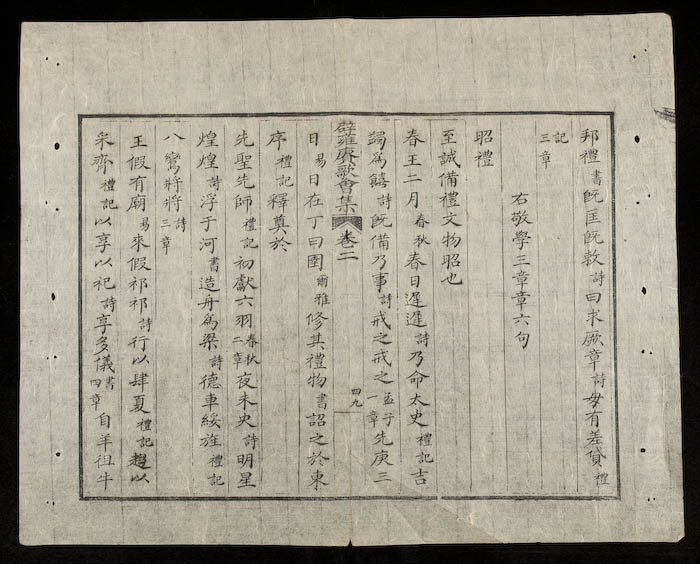 邦禮書既匡既敕詩曰求厥章詩毋有差貸禮
記三章
右敬學三章章六句
昭禮
至誠備禮文物昭也
春王二月春秋春日遲遲詩乃命太史禮記吉
蠲為饎詩既備乃事詩戒之戒之孟子一章先庚三
日易日在丁曰圉爾雅修其禮物書詔之於東
序禮記釋奠於
辟雍賡歌會集 卷二 四九
先聖先師禮記初獻六羽春秋二章夜未央詩明星
煌煌詩浮于河書造舟為梁詩德車綏旌禮記
八鸞將將詩三章
王假有廟易來假祁祁詩行以肆夏禮記趨以
采齊禮記以享以祀詩享多儀書四章自羊徂牛